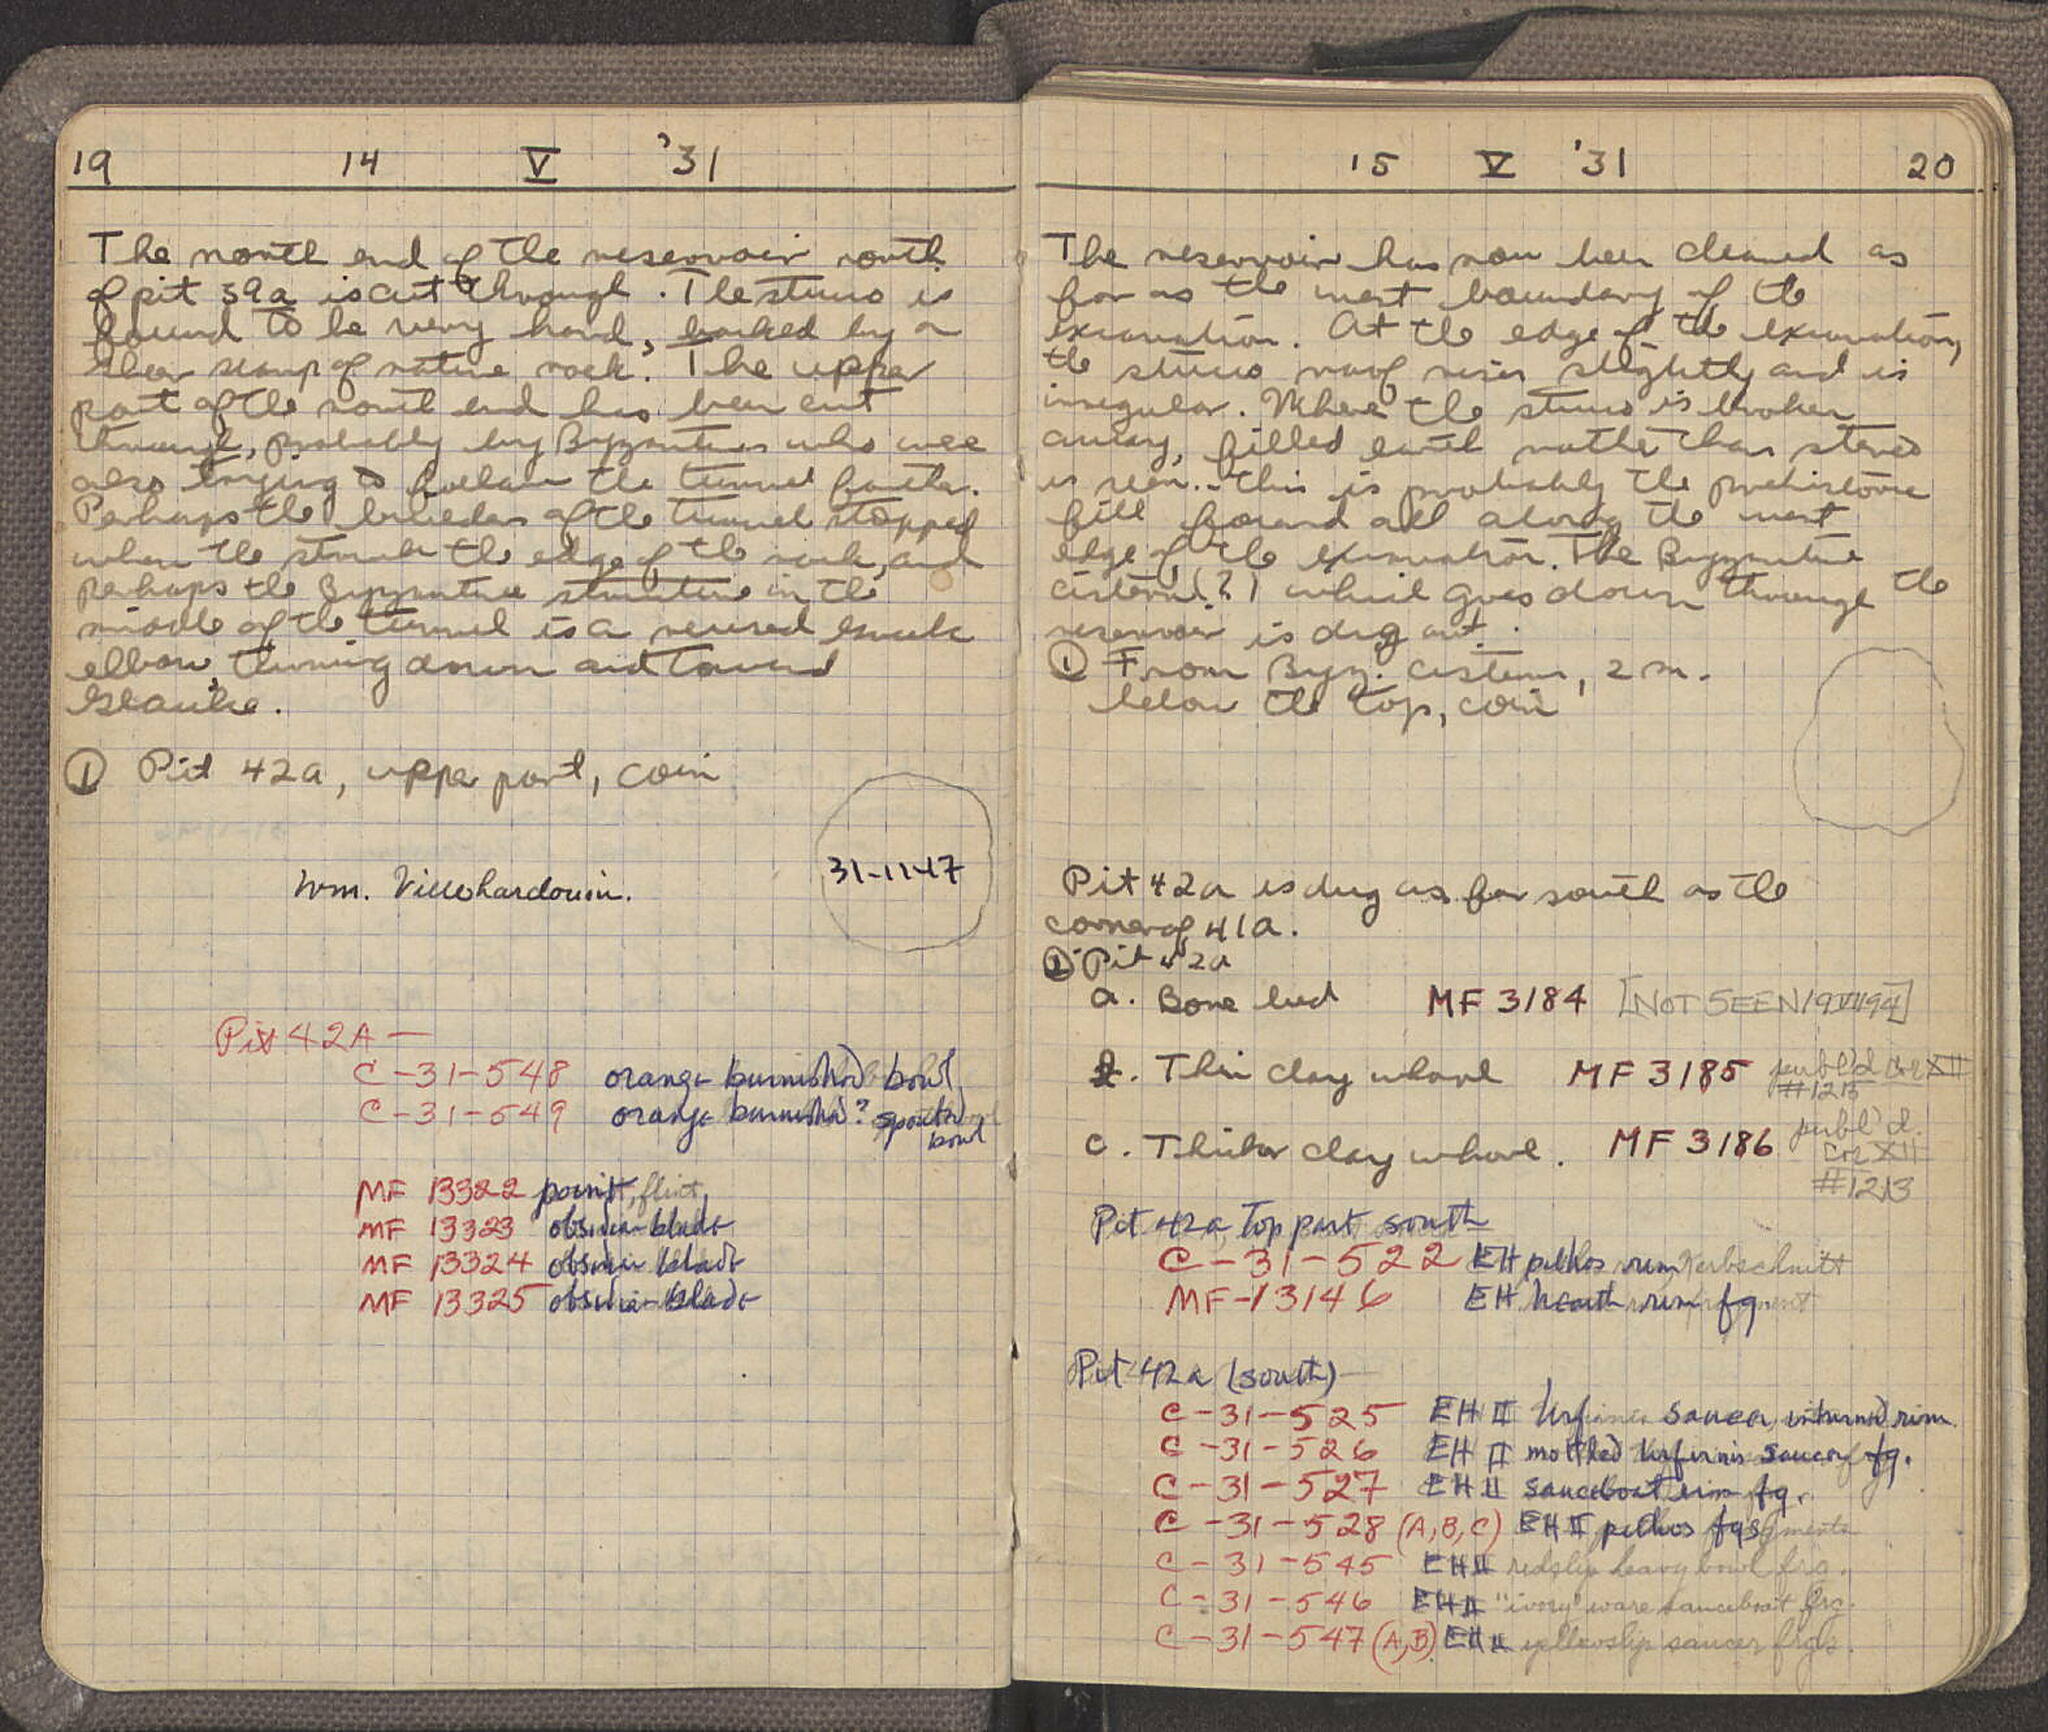 19 14 V '31
The north end of the reservoir south
of pit 39a is cut through. The stucco is
found to be very hard, backed by a
sheer scarp of native rock. The upper
part of the south end has been cut
through, probably by Byzantines who were
also trying to follow the tunnel farther.
Perhaps the builders of the tunnel stopped
when the struck the edge of the rock, and
perhaps the Byzantine structure in the
middle of the tunnel is a reused Greek
elbow, turning down and toward
Glauke.
① Pit 42a, upper part, coin
31-11-17
Wm. Villehardouin.
Pit 42A —
C-31-548 orange burnished bowl
C-31-549 orange burnished? spouted
bowl
MF 13322 point, flint,
MF 13323 obsidian blade
MF 13324 obsidian blade
MF 13325 obsidian blade
15 V '31 20
The reservoir has now been cleaned as
far as the west boundary of the
excavation. At the edge of the excavation,
the stucco roof rises slightly and is
irregular. Where the stucco is broken
away, filled earth rather than stereo
is seen. This is probably the prehistoric
fill found all along the west
edge of the excavation. The Byzantine
cistern (?) which goes down through the
reservoir is dug out.
① From Byz. cistern, 2 m.
below the top, coin
Pit 42a is dug as far south as the
corner of 41a.
② Pit 42a
a. Bone bead MF 3184 [NOT SEEN 19 VII 94]
b. Thin clay whorl MF 3185 publ'd Cor XII
#1215
c. Thicker clay whorl. MF 3186 publ'd.
Cor XII
#1213
Pit 42a Top part south
C-31-522 EH pithos rum Kerbschnitt
MF-13146 EH hearth rim fg
Pit 42a (south)—
C-31-525 EH II Urfirnis saucer, inturned rim
C-31-526 EH II mottled Urfirnis saucer fg.
C-31-527 EH II sauceboat rim fg.
C-31-528 (A,B,C) EH II pithos fgs
C-31-545 EH II redslip heavy bowl frg.
C-31-546 EH II "ivory" ware sauceboat frg.
C-31-547 (A,B) EH II yellowslip saucer frgs.